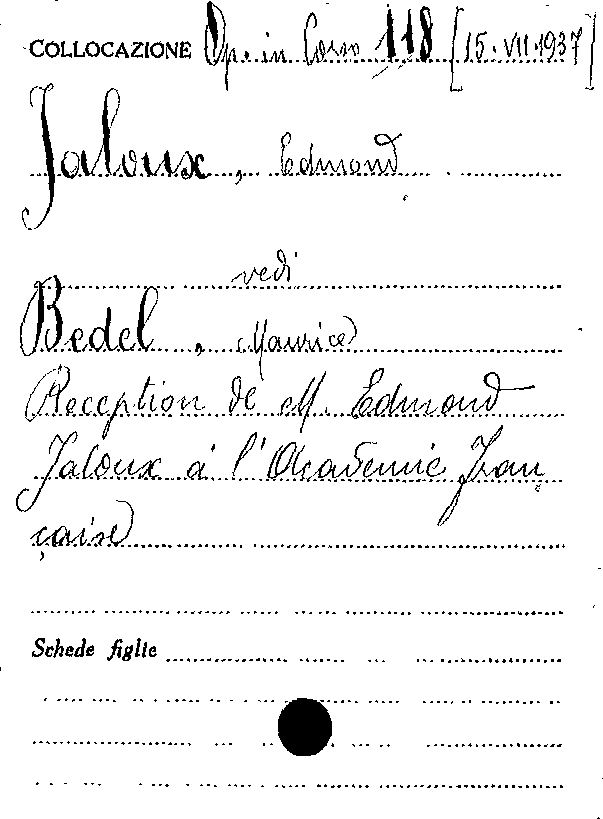 COLLOCAZIONE Op. in Corso 118 [15.VII.1937]
Jaloux, Edmond
vedi
Bedel, Maurice
Reception de M. Edmond
Jaloux à l'Academie Fran
çaise
Schede figlie